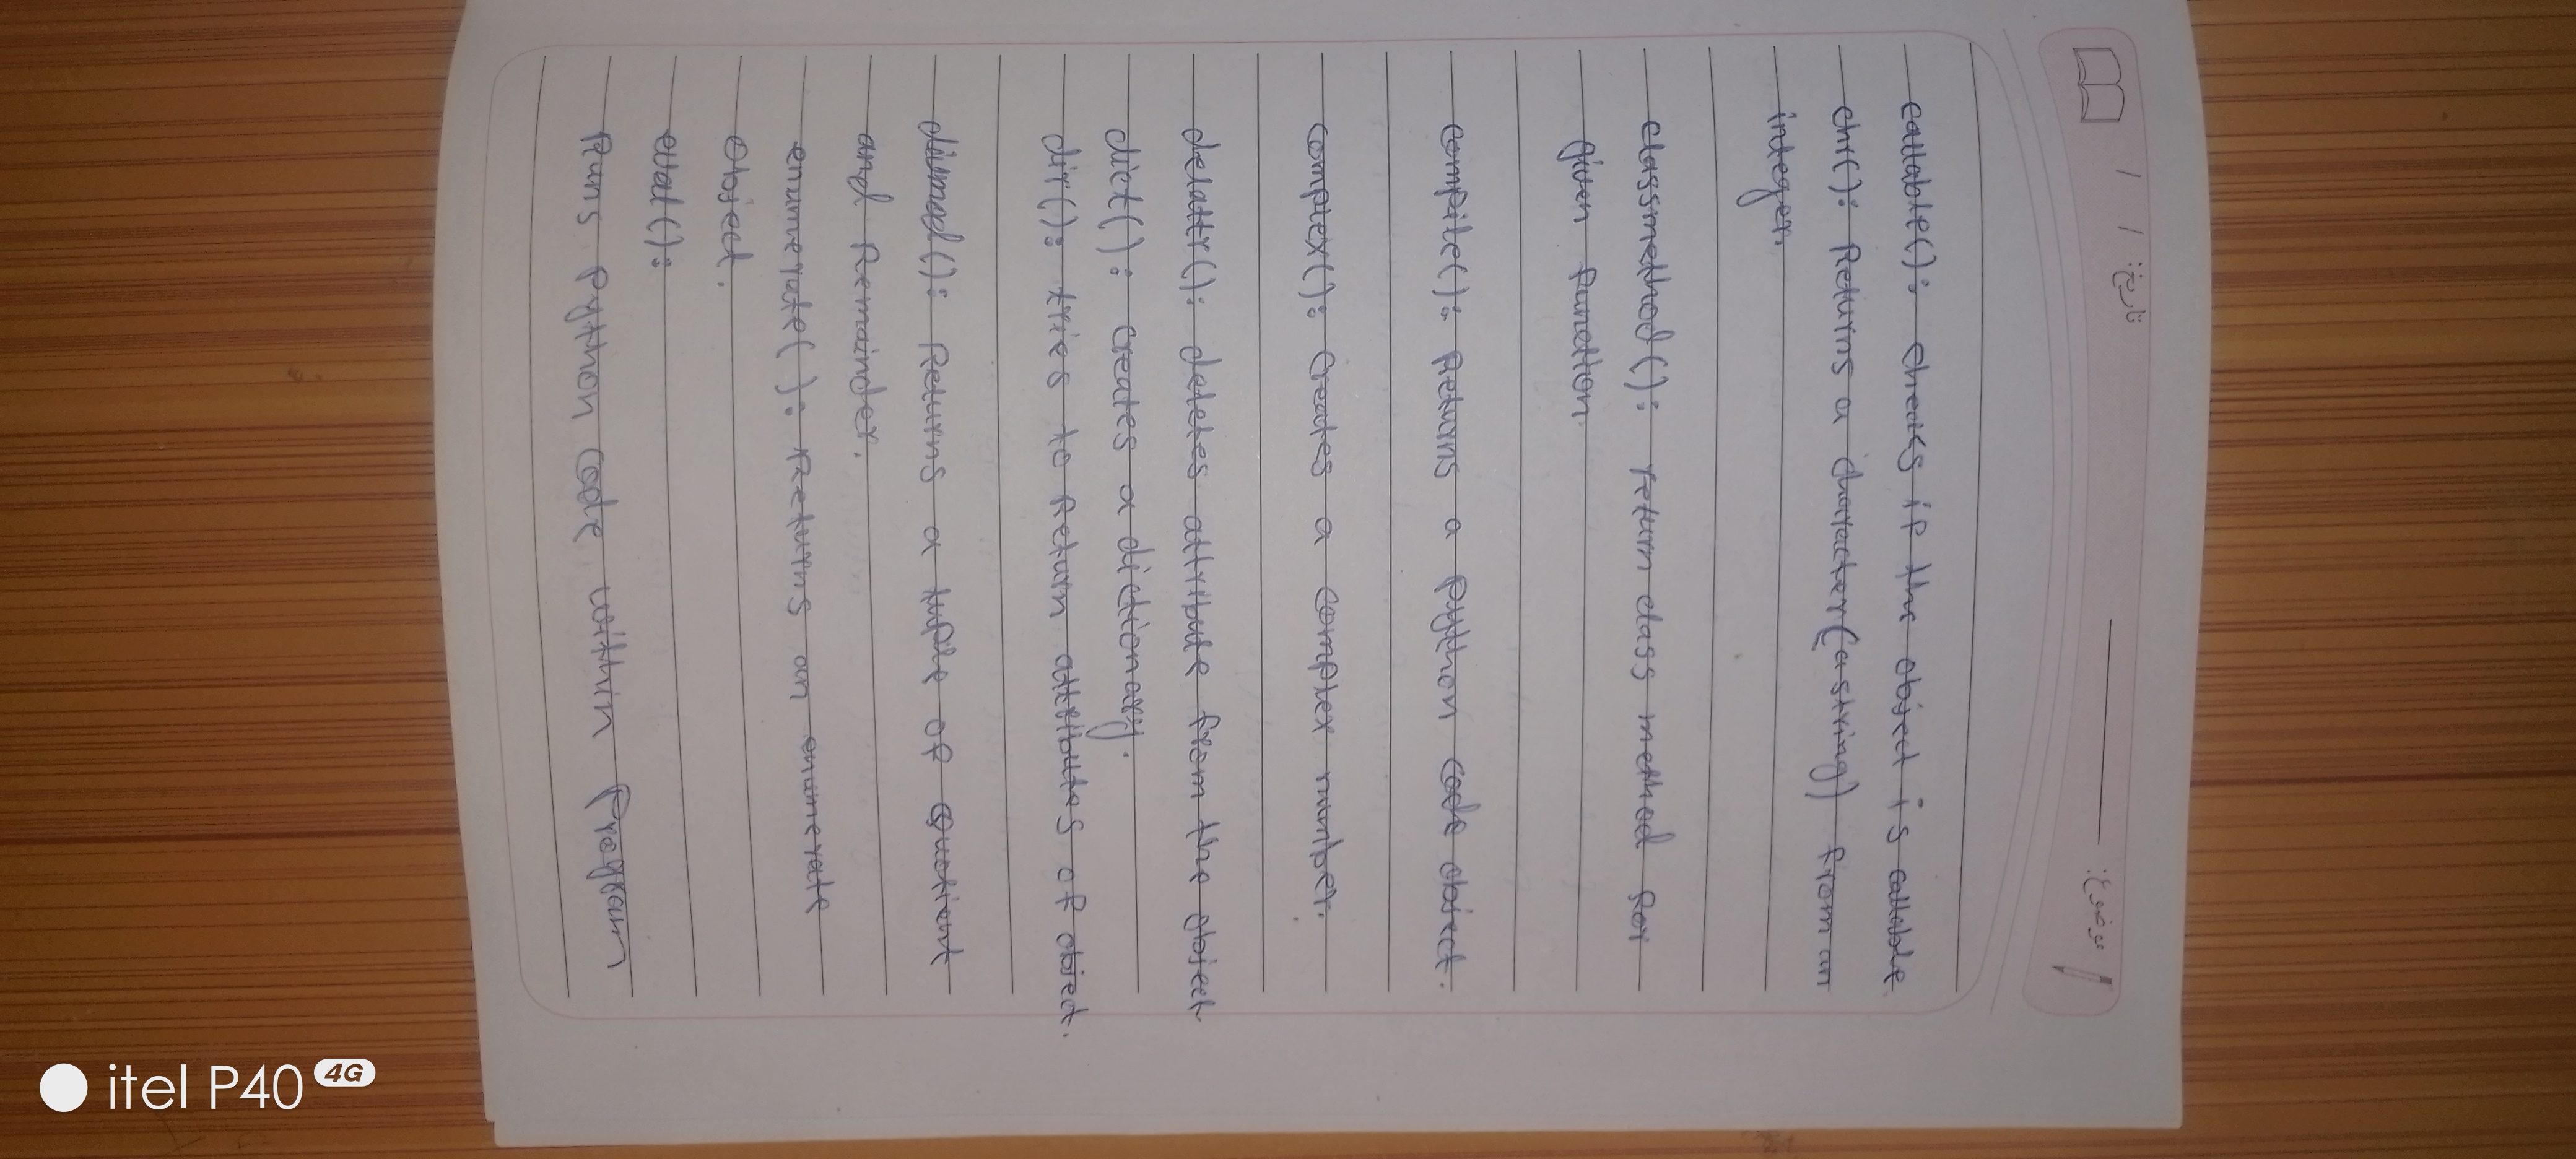 تاريخ: / /
موضوع:
callable(): checks if the object is callable.
chr(): Returns a character(a string) from an
integer.
classmethod(): return class method for
given function.
compile(): Returns a Python code object.
complex(): Creates a complex number.
delattr(): deletes attribute from the object
dict(): Creates a dictionary.
dir(): tries to Return attributes of object.
divmod(): Returns a tuple of Quotient
and Remainder.
enumerate(): Returns an enumerate
Object.
eval():
Runs Python Code within Program
itel P40 4G